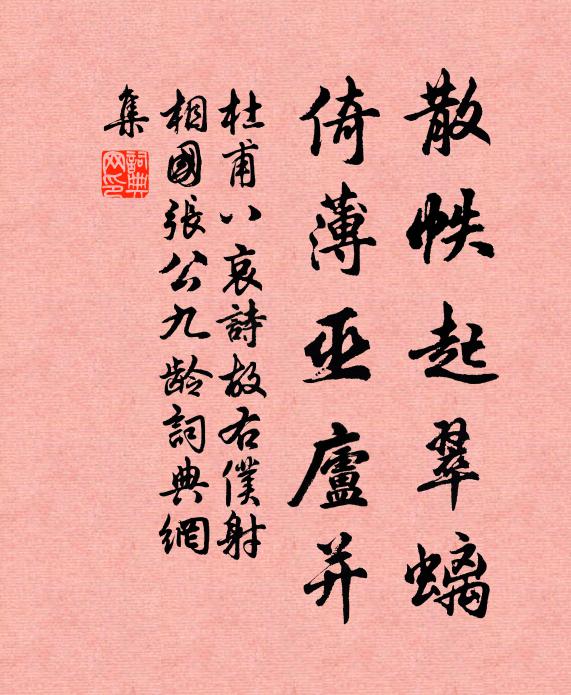 散帙起翠螭
倚薄巫廬并
杜甫八哀詩故右僕射
相國張公九齡詞典網
集
詞典
网印